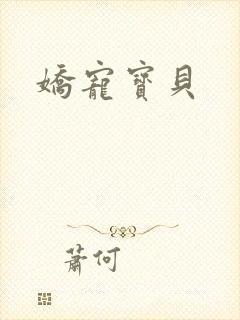 嬌寵寶貝
蕭何